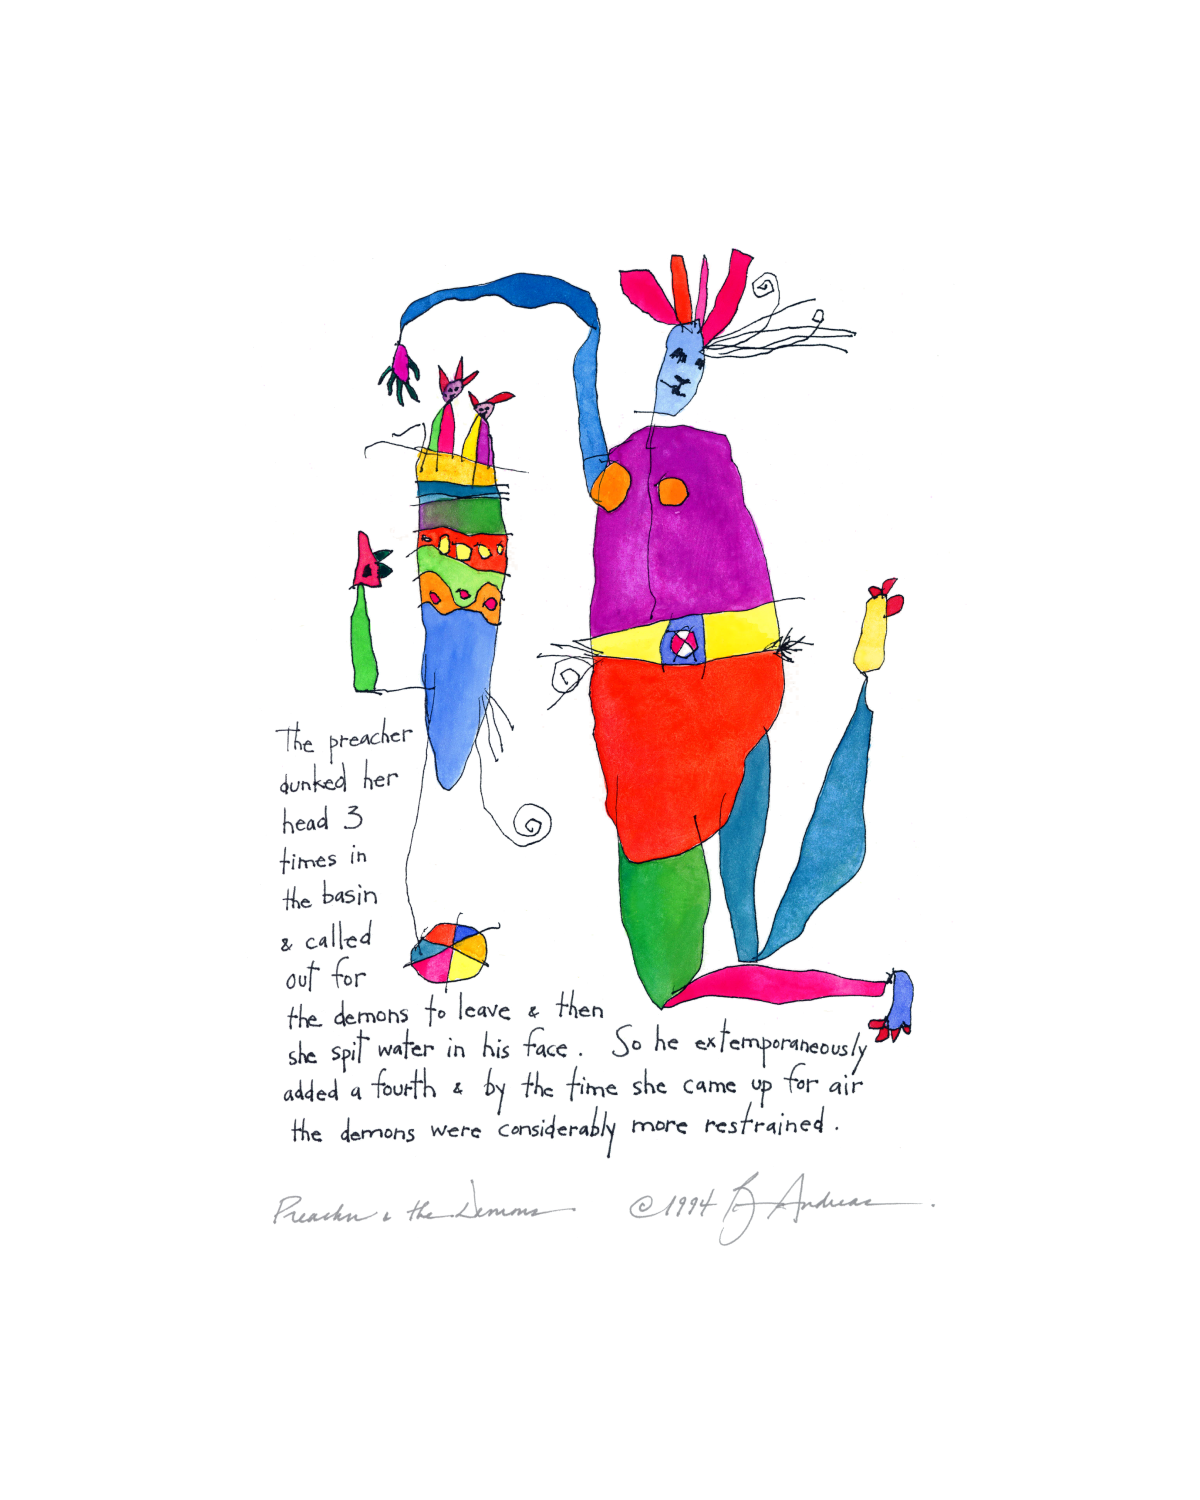 The preacher
dunked her
head 3
times in
the basin
& called
out for
the demons to leave & then
she spit water in his face. So he extemporaneously
added a fourth & by the time she came up for air
the demons were considerably more restrained.
Preacher & the Demons. © 1994 B Andreas.